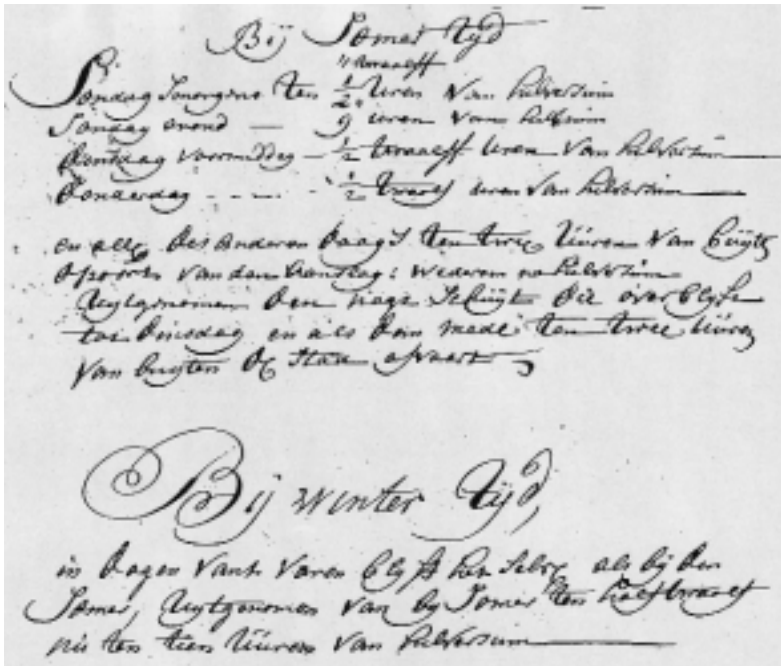 Bij Somer Tijd
Sondag smorgens ten ½ twaalff uren van hilversum
Sondag avond — 9 uren van hilversum
Dinsdag voormiddag — ½ twaalff uren van hilversum
Donderdag - - - ½ twaalf uren van hilversum
en alle des anderen daags ten twee uuren van buyten
de poort van den : wederom na hilversum
uytgenomen den schuijt die over blyft
tot dinsdag en als dan mede ten twee uuren
van buyten de Stad afvaart
Bij winter Tijd,
in dagen vant varen blyft het selve als bij den
Somer, uytgenomen van by Somer ten half twaalf
nu ten tien uuren van hilversum